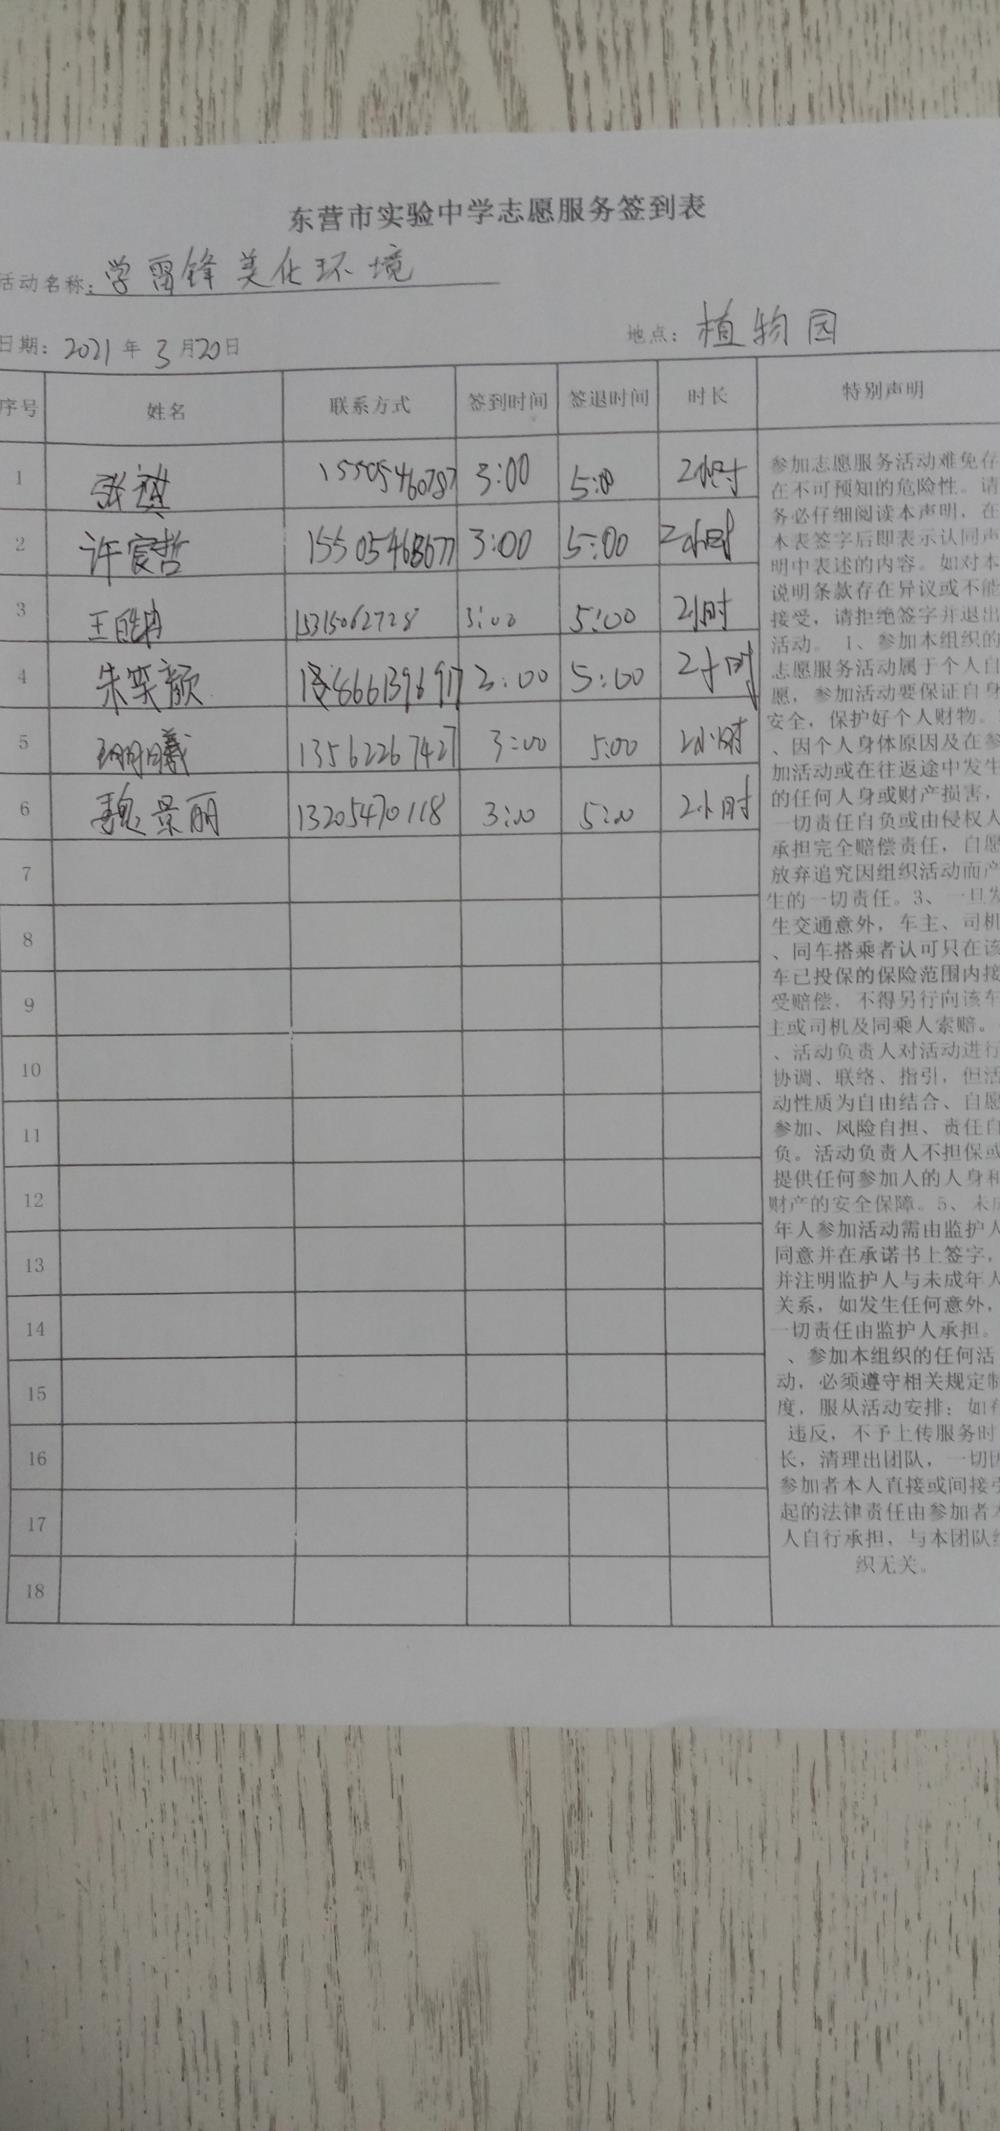 东营市实验中学志愿服务签到表
活动名称：学雷锋美化环境
日期：2021年3月20日 地点：植物园
序号 姓名 联系方式 签到时间 签退时间 时长 特别声明
1 张 15505460787 3:00 5:00 2小时
2 许宸哲 15505468677 3:00 5:00 2小时
3 王 15315062728 3:00 5:00 2小时
4 朱奕颜 18661396917 3:00 5:00 2小时
5 13562267427 3:00 5:00 2小时
6 魏景丽 13205470118 3:00 5:00 2小时
7
8
9
10
11
12
13
14
15
16
17
18
参加志愿服务活动难免存
在不可预知的危险性。请
务必仔细阅读本声明，在
本表签字后即表示认同声
明中表述的内容。如对本
说明条款存在异议或不能
接受，请拒绝签字并退出
活动。 1、参加本组织的
志愿服务活动属于个人自
愿，参加活动要保证自身
安全，保护好个人财物。
、因个人身体原因及在参
加活动或在往返途中发生
的任何人身或财产损害，
一切责任自负或由侵权人
承担完全赔偿责任，自愿
放弃追究因组织活动而产
生的一切责任。3、一旦发
生交通意外，车主、司机
、同车搭乘者认可只在该
车已投保的保险范围内接
受赔偿，不得另行向该车
主或司机及同乘人索赔。
、活动负责人对活动进行
协调、联络、指引，但活
动性质为自由结合、自愿
参加、风险自担、责任自
负。活动负责人不担保或
提供任何参加人的人身和
财产的安全保障。5、未成
年人参加活动需由监护人
同意并在承诺书上签字，
并注明监护人与未成年人
关系，如发生任何意外，
一切责任由监护人承担。
、参加本组织的任何活
动，必须遵守相关规定制
度，服从活动安排；如有
违反，不予上传服务时
长，清理出团队，一切因
参加者本人直接或间接引
起的法律责任由参加者本
人自行承担，与本团队组
织无关。